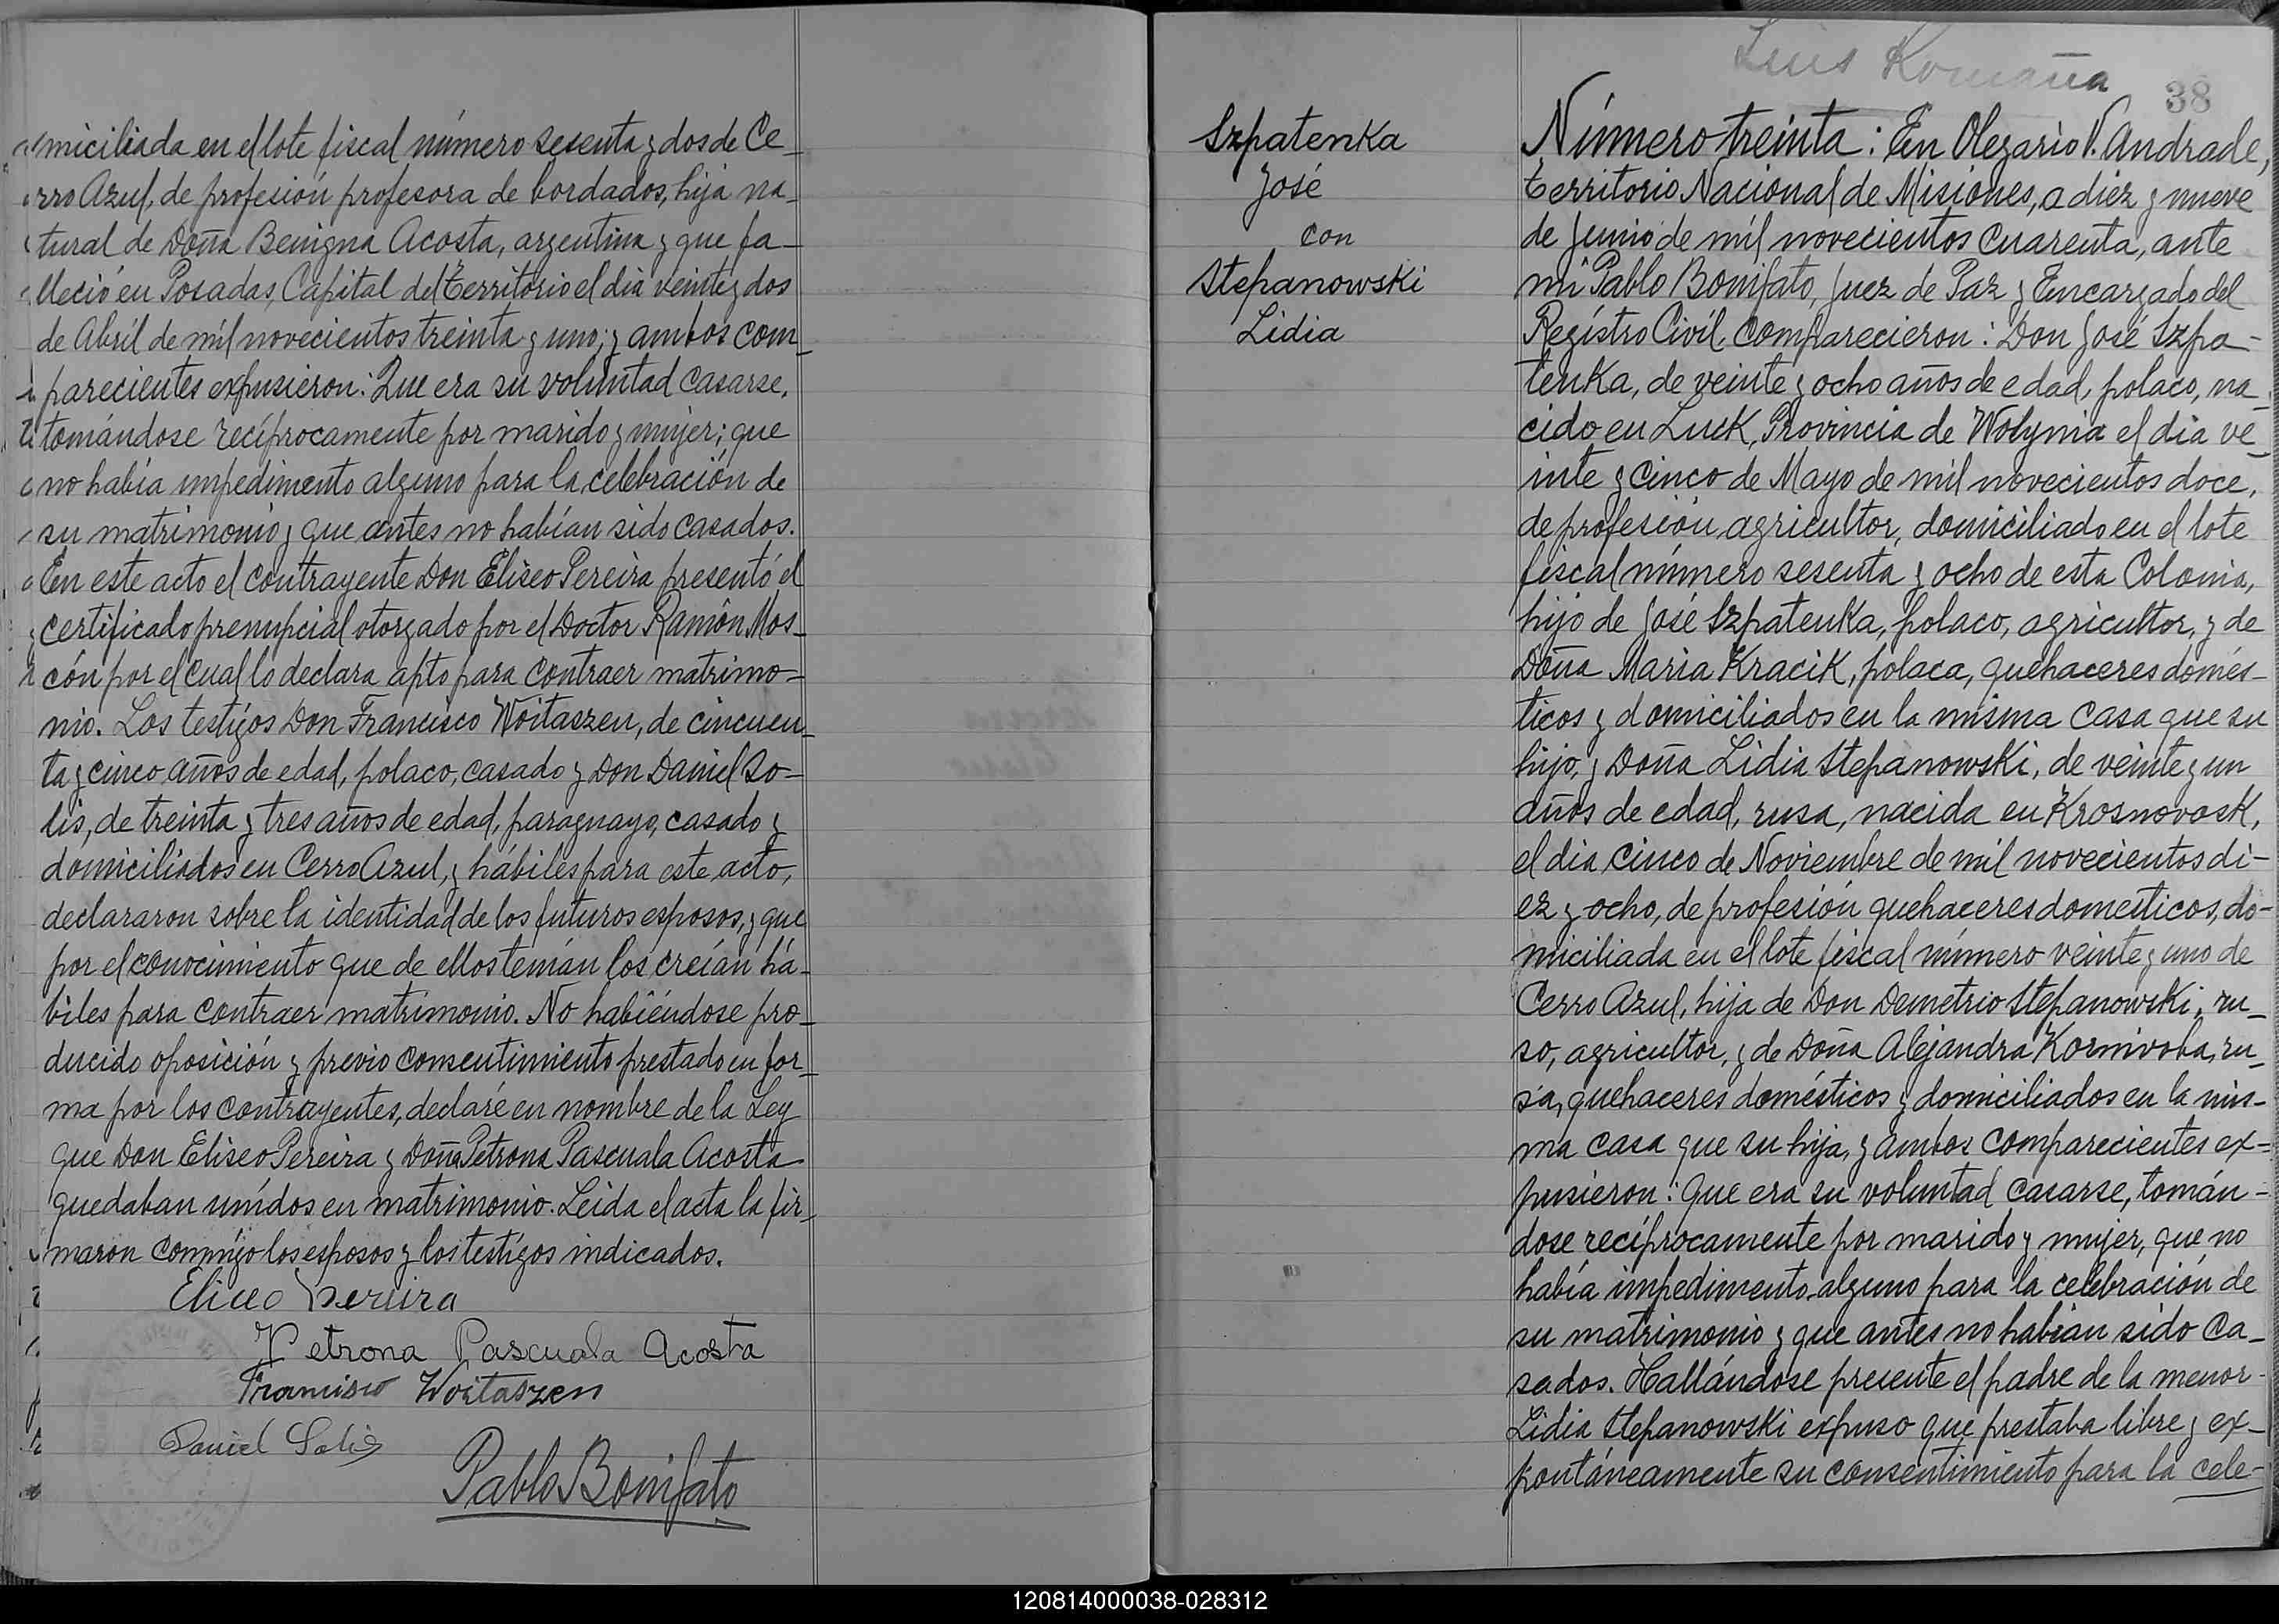 miciliada en el lote fiscal número sesenta y dos de Ce_
rro Azul, de profesión profesora de bordados, hija na_
tural de Doña Benigna Acosta, argentina y que fa_
lleció en Posadas, Capital del Territorio el dia veinte y dos
de Abril de mil novecientos treinta y uno; y ambos com_
parecientes expusieron: Que era su voluntad casarse,
tomándose recíprocamente por marido y mujer; que
no había impedimento alguno para la celebración de
su matrimonio y que antes no habían sido casados.
En este acto el contrayente Don Eliseo Pereira presentó el
certificado prenupcial otorgado por el Doctor Ramón Mos_
cón por el cual lo declara apto para contraer matrimo_
nio. Los testigos Don Francisco Woitaszen, de cincuen_
ta y cinco años de edad, polaco, casado y Don Daniel So_
lis, de treinta y tres años de edad, paraguayo, casado y
domiciliados en Cerro Azul, y hábiles para este acto,
declararon sobre la identidad de los futuros esposos, y que
por el conocimiento que de ellos tenían los creían há_
biles para contraer matrimonio. No habiéndose pro_
ducido oposición y previo consentimiento prestado en for_
ma por los contrayentes, declaré en nombre de la Ley
que Don Eliseo Pereira y Doña Petrona Pascuala Acosta
quedaban unidos en matrimonio. Leida el acta la fir_
maron conmigo los esposos y los testigos indicados.
Eliceo Pereira
Petrona Pascuala Acosta
Francisco Woitaszen
Daniel Solis
Pablo Bonifato
Luis Romaña
38
Szpatenka
José
con
Stepanowski
Lidia
Número treinta: En Olegario V. Andrade,
Territorio Nacional de Misiones, a diez y nueve
de Junio de mil novecientos cuarenta, ante
mi Pablo Bonifato, Juez de Paz y Encargado del
Registro Civil, comparecieron: Don José Szpa-
tenka, de veinte y ocho años de edad, polaco, na_
cido en Luck, Provincia de Wolynia el dia ve_
inte y cinco de Mayo de mil novecientos doce,
de profesión agricultor, domiciliado en el lote
fiscal número sesenta y ocho de esta Colonia,
hijo de José Szpatenka, polaco, agricultor, y de
Doña Maria Kracik, polaca, quehaceres domés-
ticos y domiciliados en la misma casa que su
hijo, y Doña Lidia Stepanowski, de veinte y un
años de edad, rusa, nacida en Krosnovosk,
el dia cinco de Noviembre de mil novecientos di-
ez y ocho, de profesión quehaceres domesticos, do-
miciliada en el lote fiscal número veinte y uno de
Cerro Azul, hija de Don Demetrio Stepanowski, ru_
so, agricultor, y de Doña Alejandra Kornivoba, ru_
sa, quehaceres domésticos y domiciliados en la mis-
ma casa que su hija, y ambos comparecientes ex-
pusieron: Que era su voluntad casarse, tomán-
dose recíprocamente por marido y mujer, que no
había impedimento alguno para la celebración de
su matrimonio y que antes no habían sido ca_
sados. Hallándose presente el padre de la menor
Lidia Stepanowski expuso que prestaba libre y ex_
pontáneamente su consentimiento para la cele-
120814000038-028312